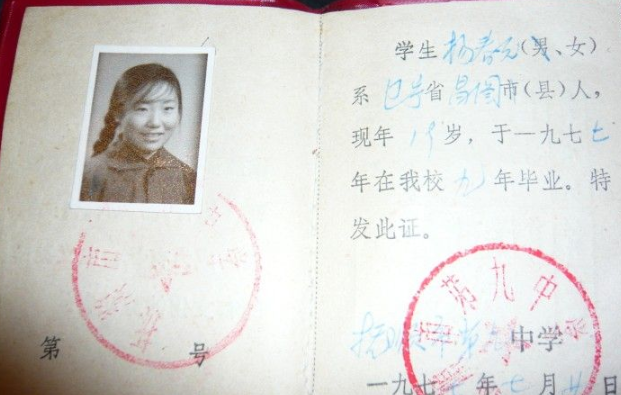 第 号
学生杨春 (男、女)
系 省昌图市(县)人，
现年 岁，于一九七七
年在我校九年毕业。特
发此证。
抚顺市第九中学
第九中学
一九七 年七月 日